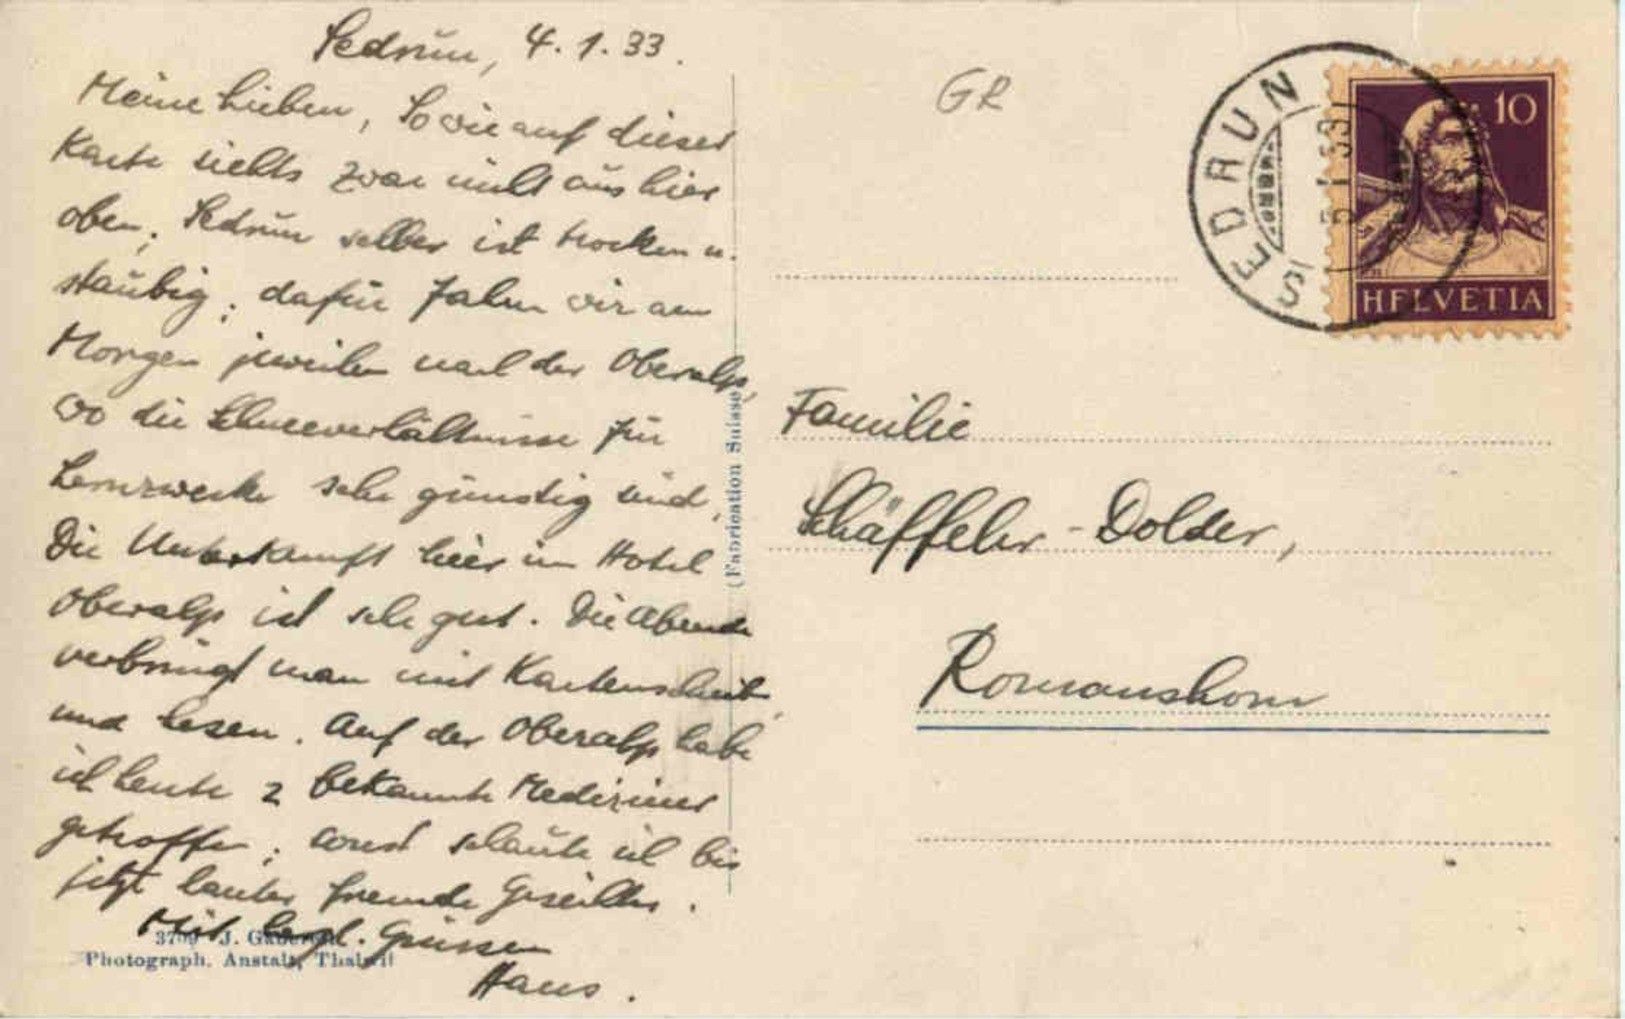 Sedrun, 4.1.33.
Meine Lieben, So wie auf dieser
Karte siehts zwar nicht aus hier
oben; Sedrun selber ist trocken u.
staubig; dafür fahren wir am
Morgen jeweilen nach der Oberalp,
wo die Schneeverhältnisse für
Lernzwecke sehr günstig sind,
Die Unterkunft hier im Hotel
Oberalp ist sehr gut. Die Abende
verbringt man mit Kartenschreib.
und Lesen. Auf der Oberalp habe
ich heute 2 bekannte Mediziner
getroffen; sonst schaute ich bis
jetzt lauter fremde Gesichter.
Mit hrzl. Grüssen
Haus.
3799 J. Gaberell
Photograph. Anstalt, Thalwil
(Fabrication Suisse)
GR
SEDRUN
5.I.33
10
HELVETIA
Familie
Schäffeler-Dolder,
Romanshorn